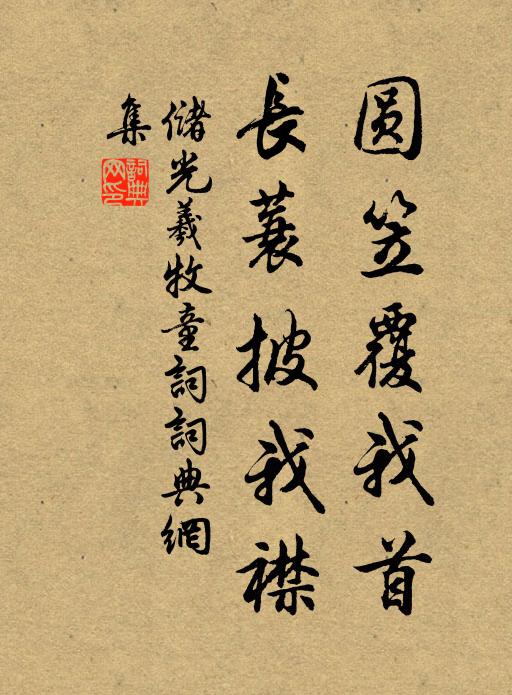 圓笠覆我首
長蓑披我襟
儲光羲牧童詞詞典網
集
詞典網印